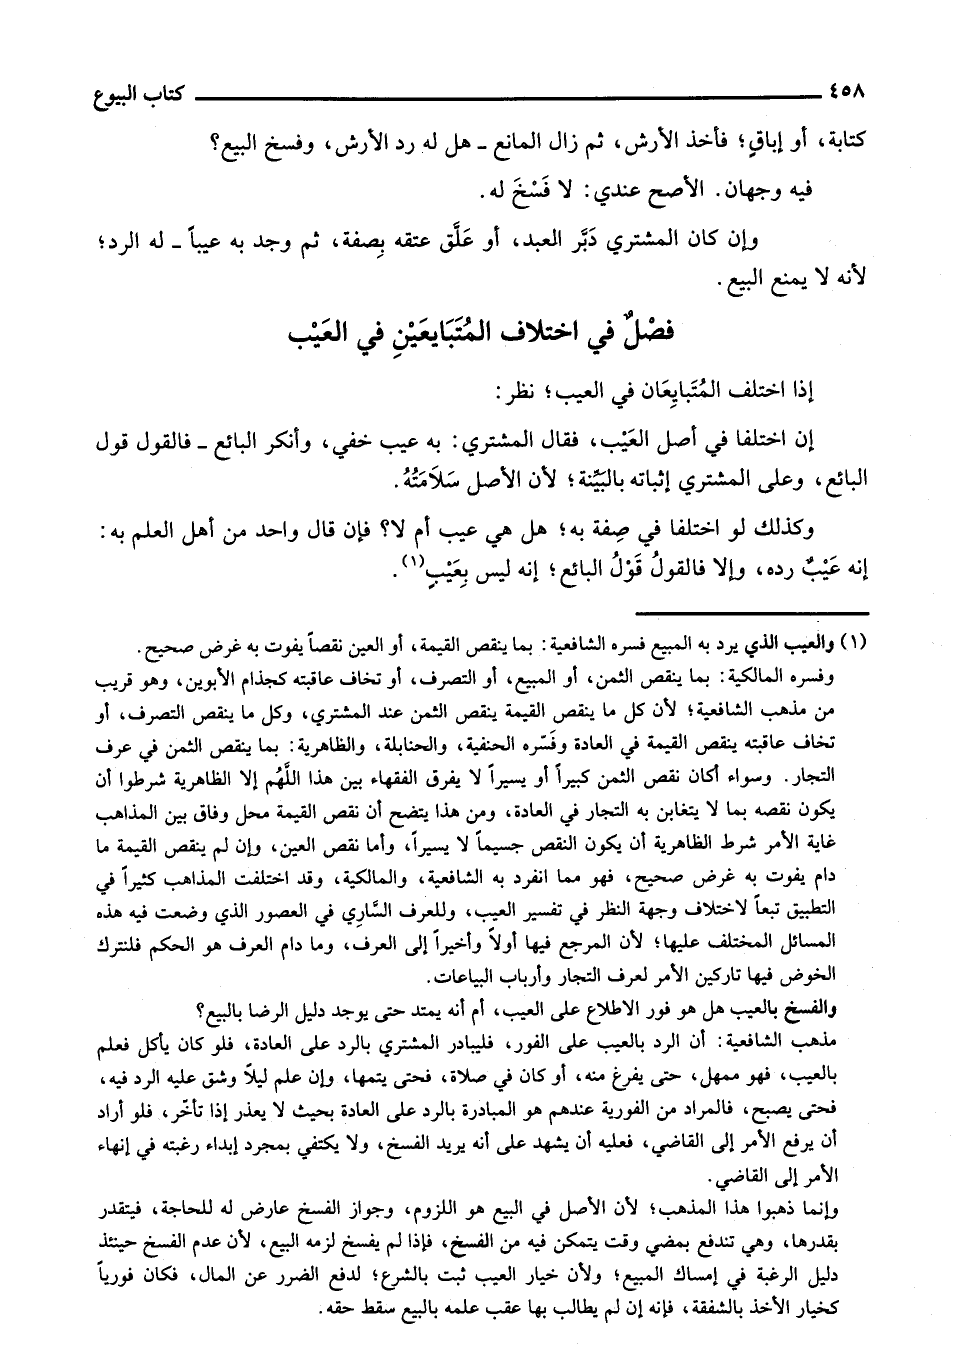 ٤٥٨ كتاب البيوع
كتابة، أو إباقٍ؛ فأخذ الأرش، ثم زال المانع ـ هل له رد الأرش، وفسخ البيع؟
فيه وجهان. الأصح عندي: لا فَسْخَ له.
وإن كان المشتري دَبَّر العبد، أو عَلَّق عتقه بِصفة، ثم وجد به عيباً ـ له الرد؛
لأنه لا يمنع البيع.
فصْلٌ في اختلاف المُتَبَايعَيْنِ في العَيْب
إذا اختلف المُتَبايِعَان في العيب؛ نظر:
إن اختلفا في أصل العَيْب، فقال المشتري: به عيب خفي، وأنكر البائع ـ فالقول قول
البائع، وعلى المشتري إثباته بالبَيِّنة؛ لأن الأصل سَلَامَتُهُ.
وكذلك لو اختلفا في صِفة به؛ هل هي عيب أم لا؟ فإن قال واحد من أهل العلم به:
إنه عَيْبٌ رده، وإلا فالقولُ قَوْلُ البائع؛ إنه ليس بِعَيْبٍ(١).
(١) والعيب الذي يرد به المبيع فسره الشافعية: بما ينقص القيمة، أو العين نقصاً يفوت به غرض صحيح.
وفسره المالكية: بما ينقص الثمن، أو المبيع، أو التصرف، أو تخاف عاقبته كجذام الأبوين، وهو قريب
من مذهب الشافعية؛ لأن كل ما ينقص القيمة ينقص الثمن عند المشتري، وكل ما ينقص التصرف، أو
تخاف عاقبته ينقص القيمة في العادة وفَسّره الحنفية، والحنابلة، والظاهرية: بما ينقص الثمن في عرف
التجار. وسواء أكان نقص الثمن كبيراً أو يسيراً لا يفرق الفقهاء بين هذا اللَّهُم إلا الظاهرية شرطوا أن
يكون نقصه بما لا يتغابن به التجار في العادة، ومن هذا يتضح أن نقص القيمة محل وفاق بين المذاهب
غاية الأمر شرط الظاهرية أن يكون النقص جسيماً لا يسيراً، وأما نقص العين، وإن لم ينقص القيمة ما
دام يفوت به غرض صحيح، فهو مما انفرد به الشافعية، والمالكية، وقد اختلفت المذاهب كثيراً في
التطبيق تبعاً لاختلاف وجهة النظر في تفسير العيب، وللعرف السَّاري في العصور الذي وضعت فيه هذه
المسائل المختلف عليها؛ لأن المرجع فيها أولاً وأخيراً إلى العرف، وما دام العرف هو الحكم فلنترك
الخوض فيها تاركين الأمر لعرف التجار وأرباب البياعات.
والفسخ بالعيب هل هو فور الاطلاع على العيب، أم أنه يمتد حتى يوجد دليل الرضا بالبيع؟
مذهب الشافعية: أن الرد بالعيب على الفور، فليبادر المشتري بالرد على العادة، فلو كان يأكل فعلم
بالعيب، فهو ممهل، حتى يفرغ منه، أو كان في صلاة، فحتى يتمها، وإن علم ليلاً وشق عليه الرد فيه،
فحتى يصبح، فالمراد من الفورية عندهم هو المبادرة بالرد على العادة بحيث لا يعذر إذا تأخّر، فلو أراد
أن يرفع الأمر إلى القاضي، فعليه أن يشهد على أنه يريد الفسخ، ولا يكتفي بمجرد إبداء رغبته في إنهاء
الأمر إلى القاضي.
وإنما ذهبوا هذا المذهب؛ لأن الأصل في البيع هو اللزوم، وجواز الفسخ عارض له للحاجة، فيتقدر
بقدرها، وهي تندفع بمضي وقت يتمكن فيه من الفسخ، فإذا لم يفسخ لزمه البيع، لأن عدم الفسخ حينئذ
دليل الرغبة في إمساك المبيع؛ ولأن خيار العيب ثبت بالشرع؛ لدفع الضرر عن المال، فكان فورياً
كخيار الأخذ بالشفقة، فإنه إن لم يطالب بها عقب علمه بالبيع سقط حقه.